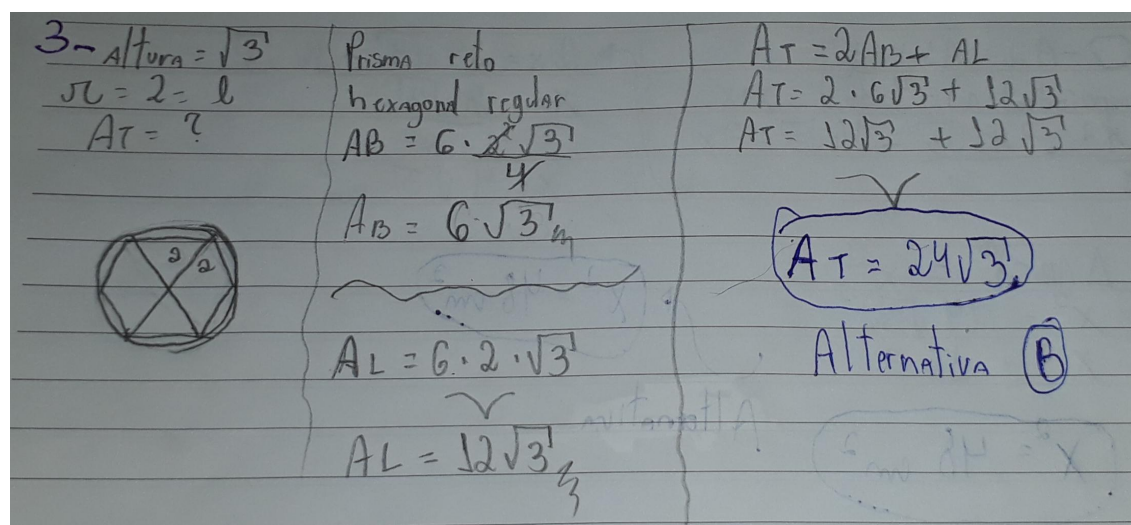 3- Altura = √3
r = 2 = l
AT = ?
2 2
Prisma reto
hexagonal regular
AB = 6 · 2²√3 / 4
AB = 6√3
AL = 6 · 2 · √3
AL = 12√3
AT = 2AB + AL
AT = 2 · 6√3 + 12√3
AT = 12√3 + 12√3
AT = 24√3
Alternativa B